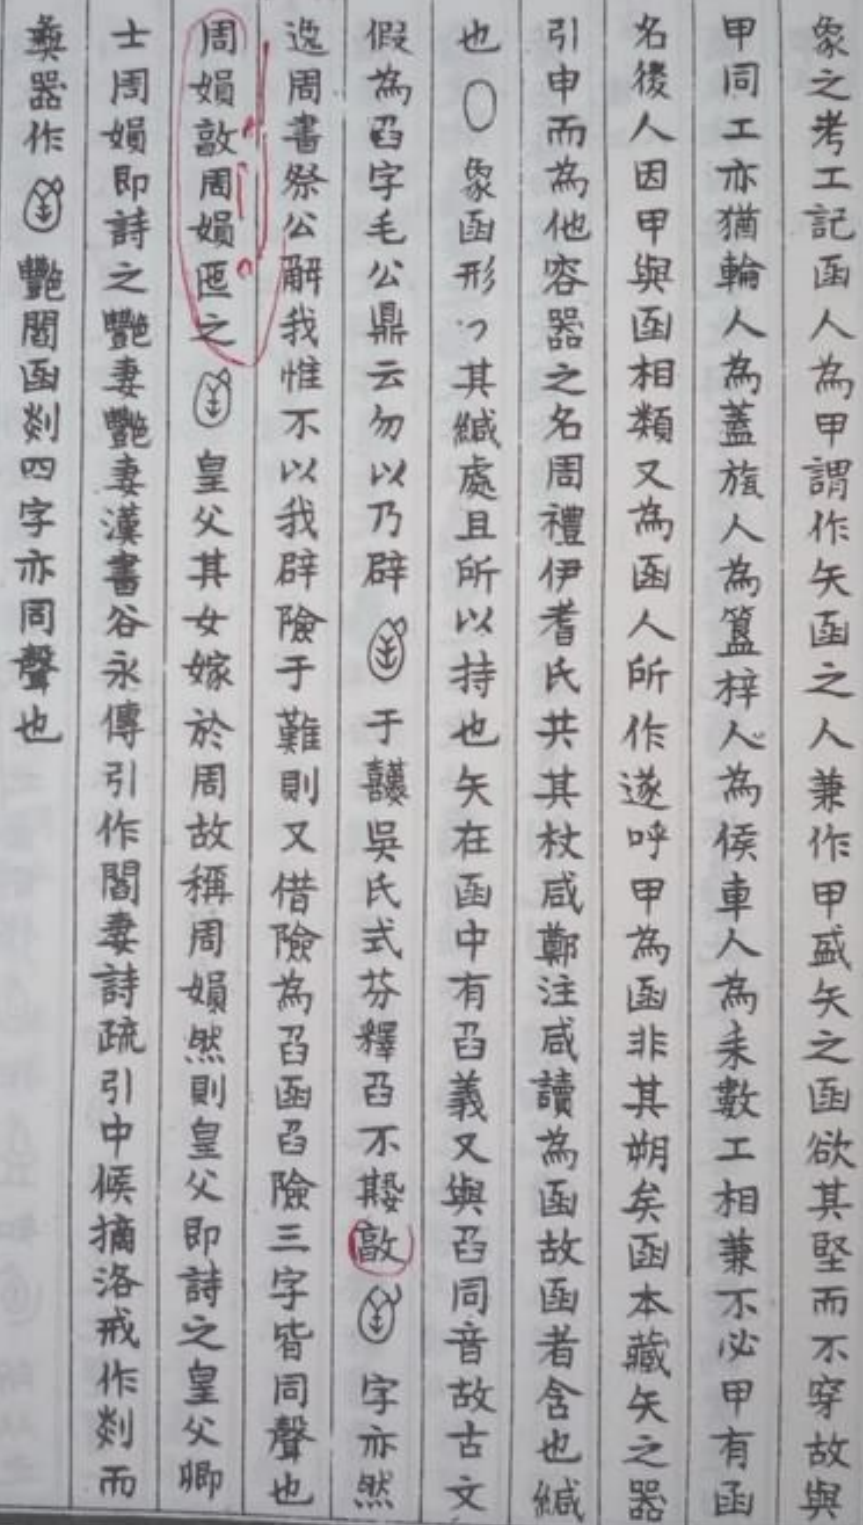 象之考工記函人為甲謂作矢函之人兼作甲盛矢之函欲其堅而不穿故與
甲同工亦猶輪人為蓋旊人為簋梓人為侯車人為耒數工相兼不必甲有函
名後人因甲與函相類又為函人所作遂呼甲為函非其朔矣函本藏矢之器
引申而為他容器之名周禮伊耆氏共其杖咸鄭注咸讀為函故函者含也緘
也象函形其緘處且所以持也矢在函中有臽義又與臽同音故古文
假為臽字毛公鼎云勿以乃辟于囏吳氏式芬釋臽不𡢁敦字亦然
逸周書祭公解我惟不以我辟險于難則又借險為臽函臽險三字皆同聲也
周娟敦周娟匜之皇父其女嫁於周故稱周娟然則皇父即詩之皇父卿
士周娟即詩之豔妻豔妻漢書谷永傳引作閻妻詩疏引中候摘洛戒作剡而
彝器作豔閻函剡四字亦同聲也